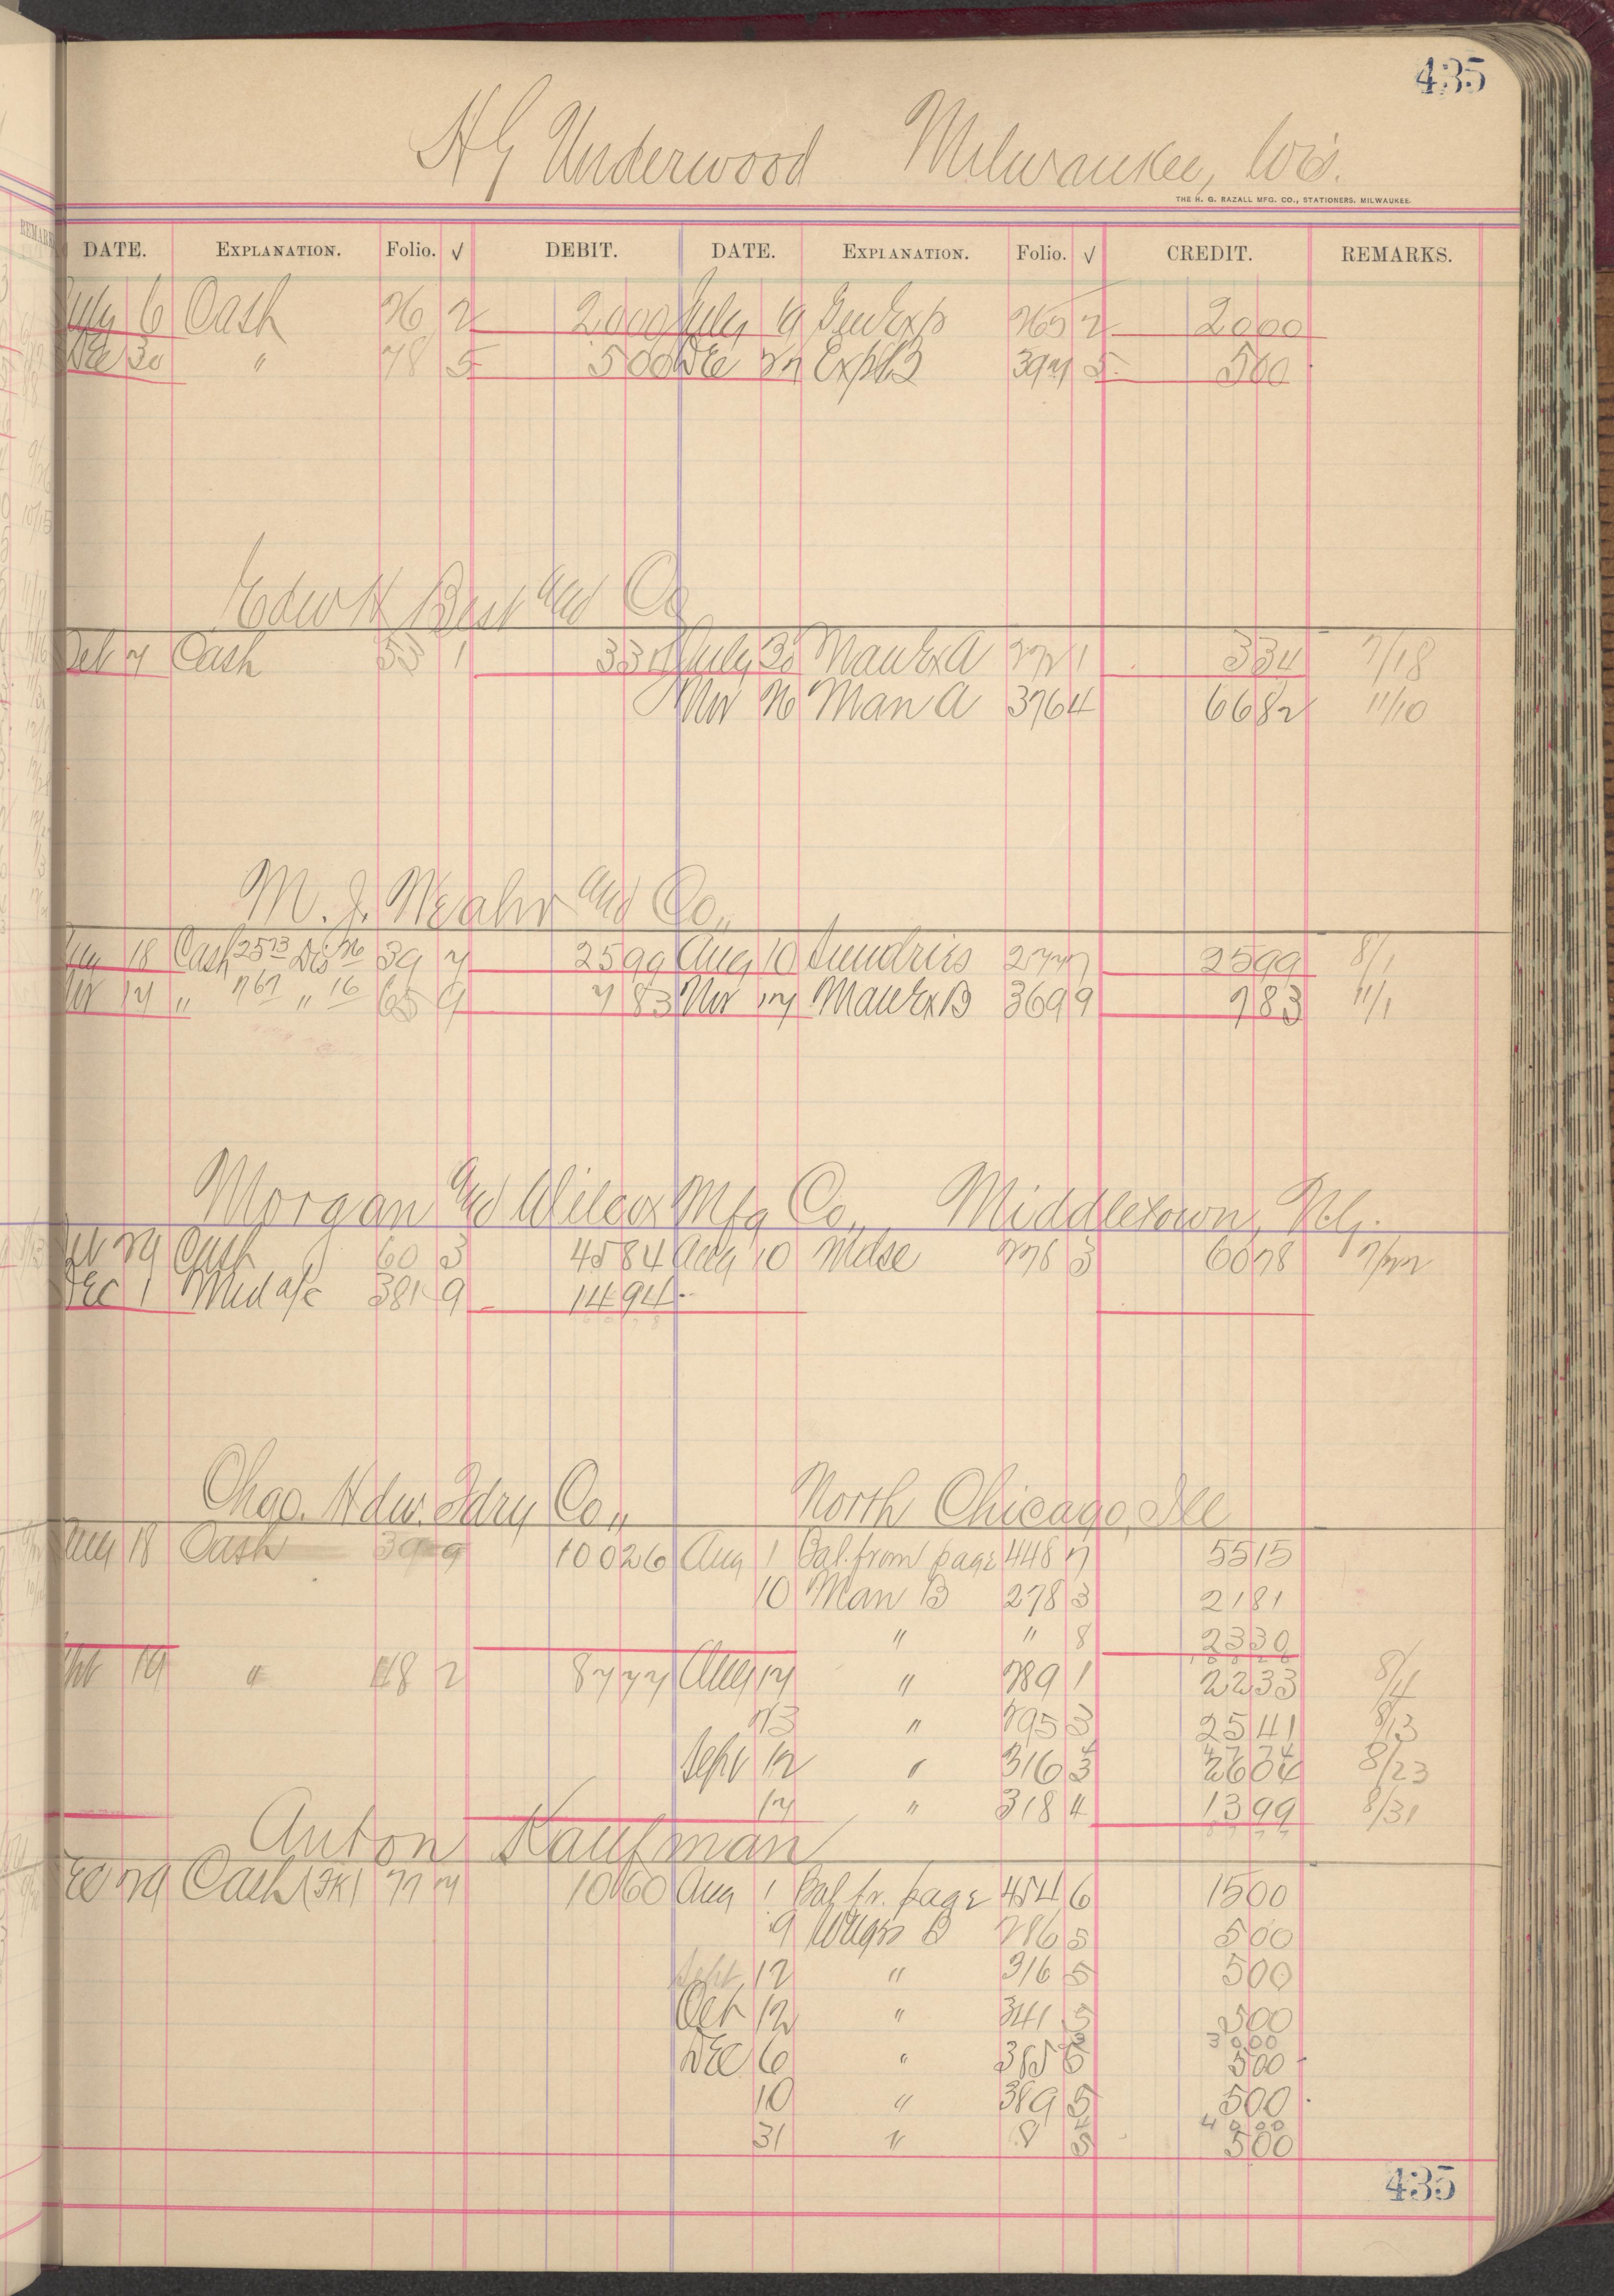 435
H G Underwood Milwaukee, Wis.
THE H. G. RAZALL MFG. CO., STATIONERS, MILWAUKEE.
DATE. EXPLANATION. Folio. √ DEBIT. DATE. EXPLANATION. Folio. √ CREDIT. REMARKS.
July 6 Cash 26 2 2000 July 19 Gen Exp 265 2 2000
Dec 30 " 78 5 500 Dec 27 Exp B 397 5 500
Edw H Best and Co
Oct 7 Cash 53 1 334 July 30 Man Ex A 1 334 7/18
Nov 26 Man A 376 4 6682 11/10
M. J. and Co,,
Aug 18 Cash 2573 Dis 26 39 7 2599 Aug 10 Sundries 277 2599 8/1
Nov 17 " 767 " 16 65 9 783 Nov 17 Man Ex B 369 9 783 11/1
Morgan and Wilcox Mfg Co,, Middletown, N.Y.
29 Cash 60 3 4584 Aug 10 Mdse 276 3 6078 7/22
Dec 1 Med a/c 381 9 1494
Chgo. Hdw. Fdry Co,, North Chicago, Ill
Aug 18 Cash 39 9 10026 Aug 1 Bal. from page 448 7 5515
10 Man B 278 3 2181
" " 8 2330
Sept 19 " 48 2 8777 Aug 17 " 289 1 2233 8/4
23 " 295 3 2541 8/13
Sept 12 " 316 3 2604 8/23
17 " 318 4 1399 8/31
Anton Kaufman
Dec 29 Cash (JK) 77 7 1060 Aug 1 Bal fr. page 454 6 1500
9 Wages B 276 5 500
Sept 12 " 316 5 500
Oct 12 " 341 5 500
3000
Dec 6 " 385 500
10 " 389 5 500
4000
31 " 8 5 500
435